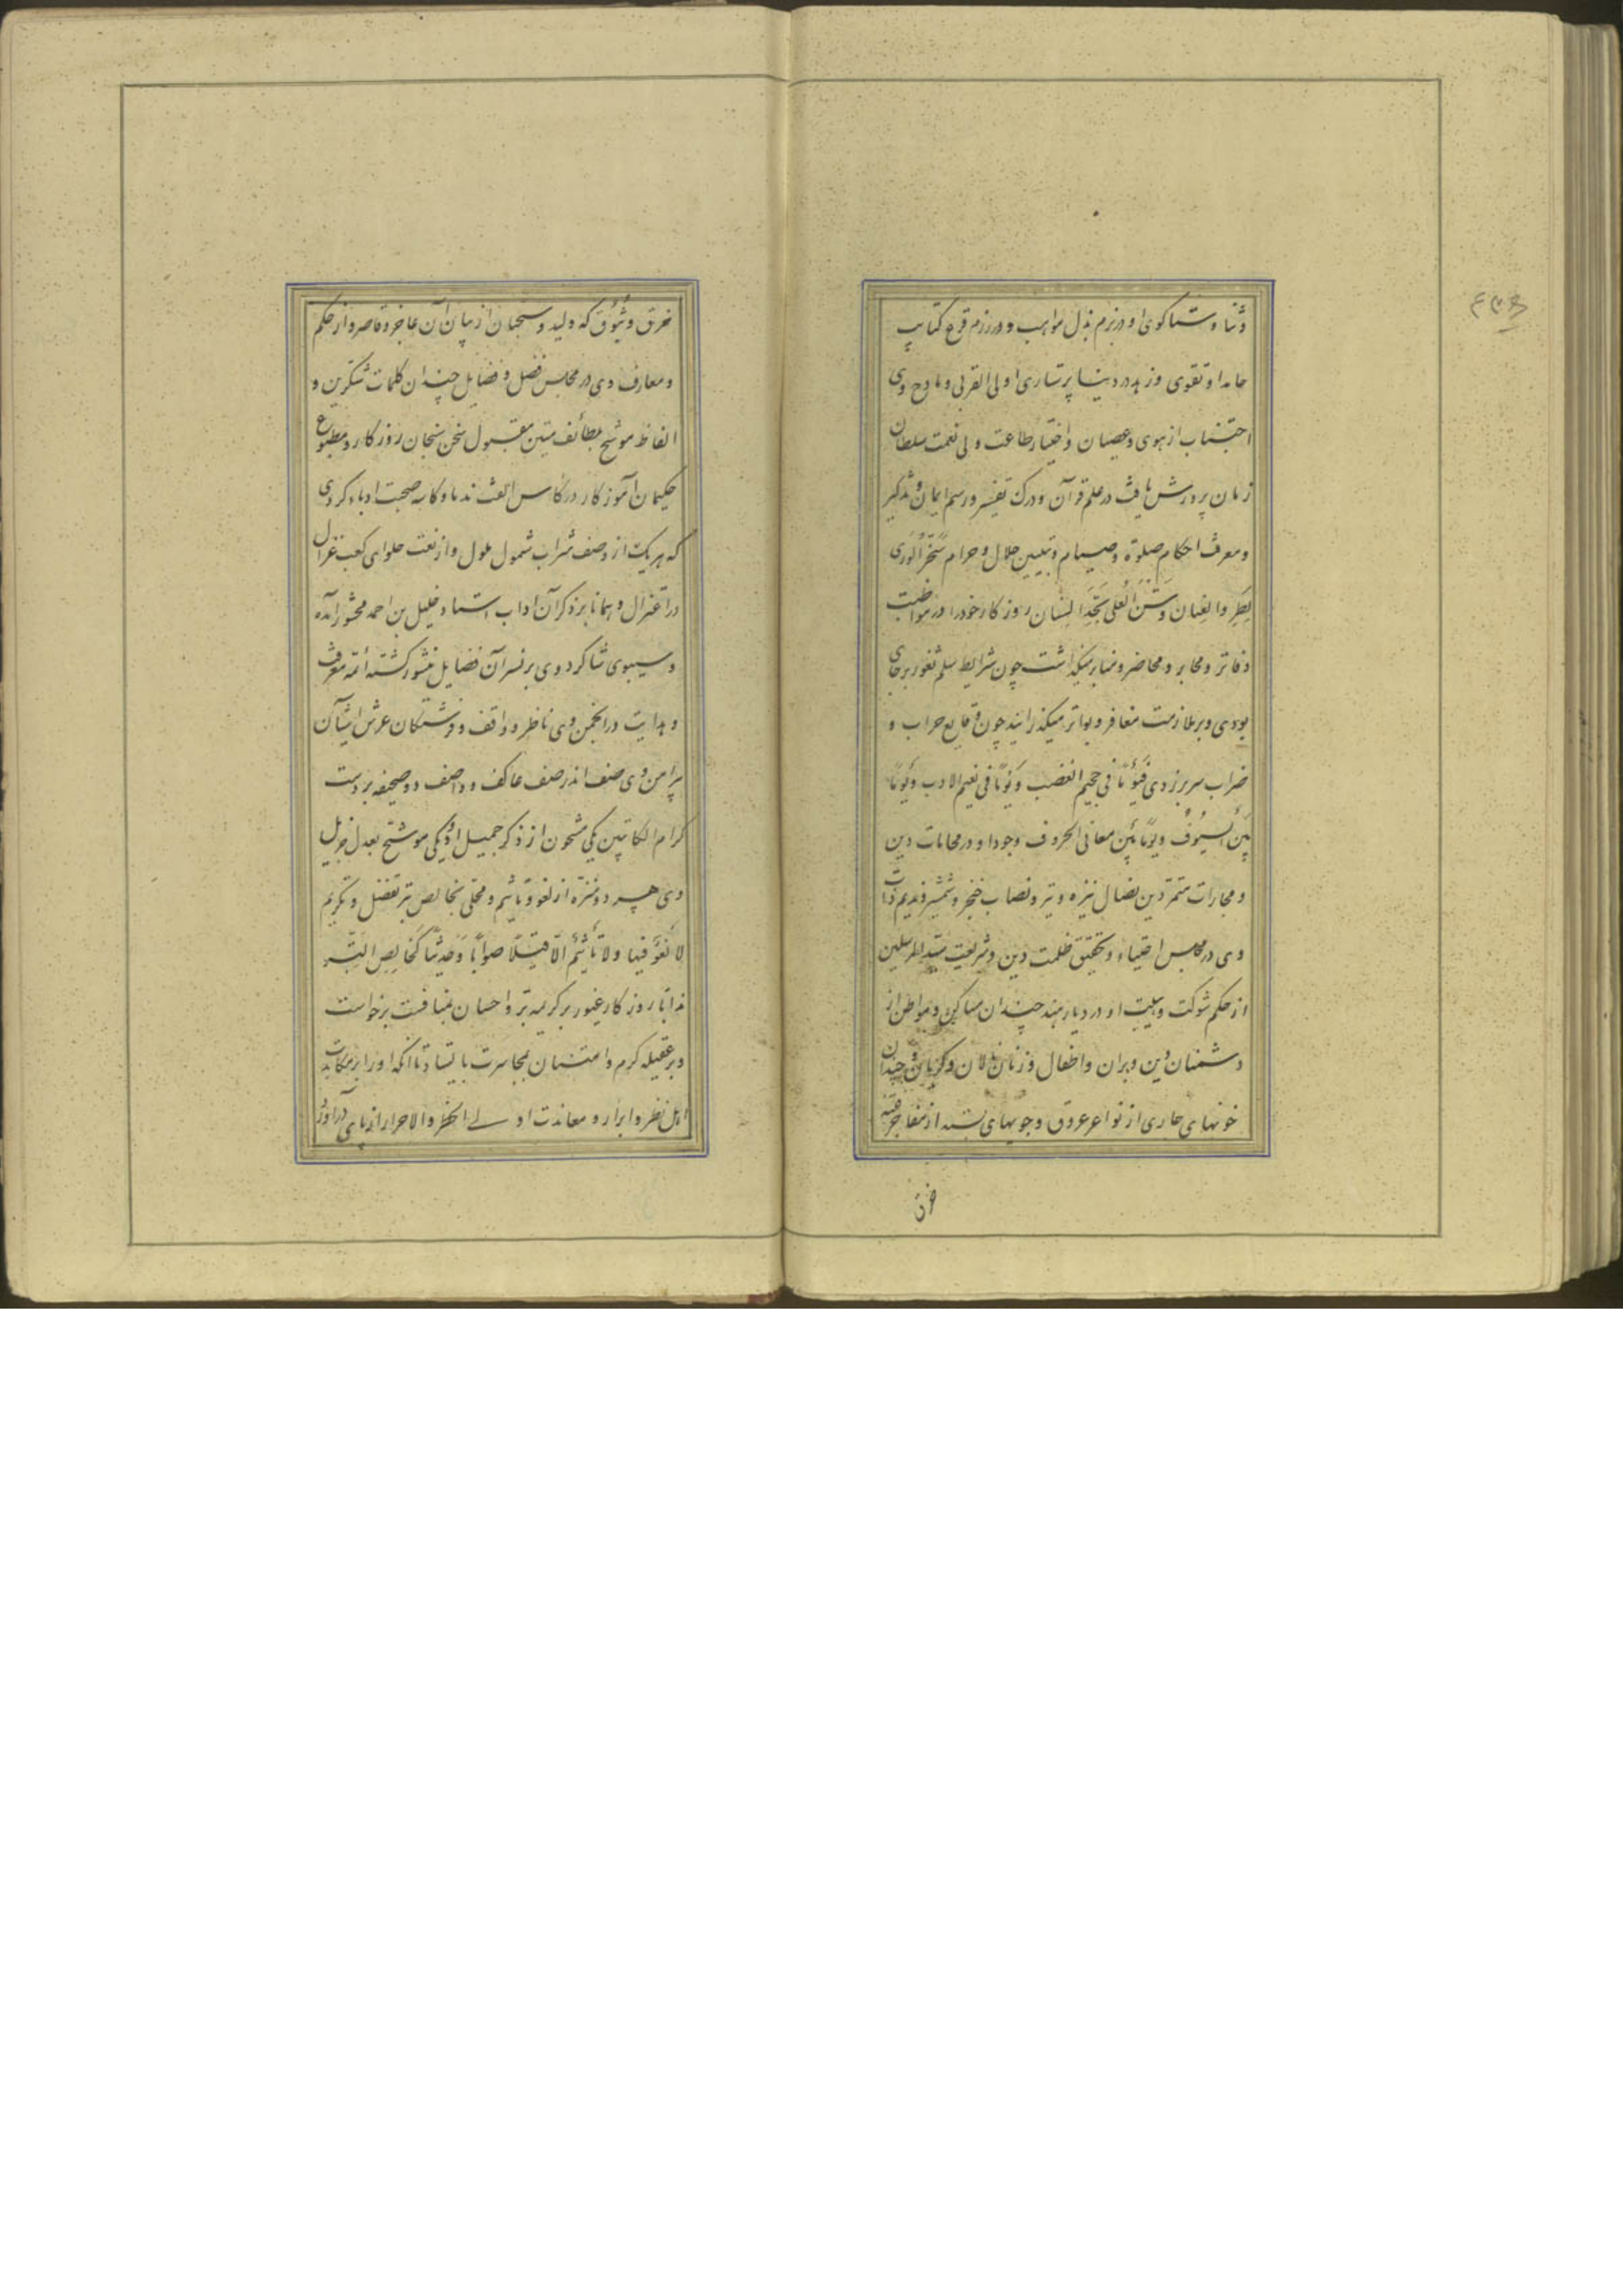 وثنا و ستاکوی او در بزم بذل مواهب و در رزم قرع کتایب
حامد او تقوی و زهد در دنیا پرستاری اولی القربی و مادح وی
اجتناب از هوی و عصیان و اختیار طاعت ولی نعمت سلطان
زمان پرورش یافت در علم قرآن و درک تفسیر و رسم ایمان و تذکیر
و معرفت احکام صلوة و صیام و تبیین حلال و حرام سخر الوری
بطر والعنان وسنن العلی بتجد السنان روزکار خود را در مواظبت
دفاتر و محابر و محاضر و منابر میکذاشت چون شرایط سلم ثغور برجای
بودی و بر ملازمت مغافر و بواتر میکذرانید چون وقایع حراب و
ضراب سر بر زدی فیومًا فی جحیم الغضب ویومًا فی نعیم الادب ویومًا
بین السیوف ویومًا بین معانی الحروف وجود او در محامات دین
و مجارات متمردین نضال نیزه و تیر و نصاب خنجر و شمشیر و ندیم ذات
وی در مجلس احتیاء و تحقیق ظلمت دین و شریعت سید المرسلین
از حکم شوکت و هیبت او در دیار هند چندان مساکن و مواطن از
دشمنان دین ویران و اطفال و زنان نالان و کریان و چندان
خونهای جاری از نواعر عروق و جویهای بسته از مفاجر فتنه
خرق
خرق وثیوق که ولید و سحبان از بیان آن عاجز و قاصر و از حکم
و معارف وی در مجلس فضل و فضایل چندان کلمات شکرین و
الفاظ موشح بطائف متین مقبول سخن سنجان روزکار و مطبوع
حکیمان آموزکار در کاس الفت ندما و کاسه صحبت ادباء کردی
که هر یک از وصف شراب شمول ملول و از نعت حلوای کعب غزال
در اعتزال و همانا بر ذکر آن اداب استاد خلیل بن احمد محشور آمده
و سیبوی شاکرد وی بر نسر آن فضایل منشور کشته ائمه معرفت
و هدایت در انجمن وی ناظر و واقف و فرشتکان عرش آشیان
پیرامن وی صف اندر صف عاکف و واصف دو صحیفه بر دست
کرام الکاتبین یکی مشحون از ذکر جمیل او و یکی موشح بعدل جزیل
وی هر دو منزه از لغو و تاثیم و محلی بخالص بر تفضل و تکریم
لا لغو فیها ولا تأثیم الا قیلًا صوابًا وحدیثًا کخالص التبر
اما روزکار غیور بر کریمه بر و احسان بمنافست برخواست
و بر عقیله کرم و امتنان بمجاسرت بایستاد تا انکه او را بر مکایت
اهل نظر و ابرار و معاندت اولی الخطر والاحرار از پای درآورد